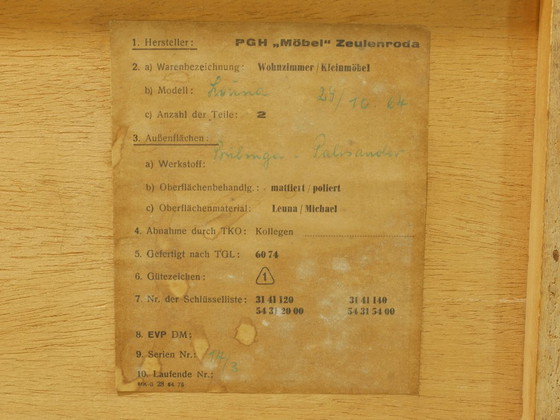 1. Hersteller: PGH „Möbel" Zeulenroda
2. a) Warenbezeichnung: Wohnzimmer/Kleinmöbel
b) Modell:
c) Anzahl der Teile: 2
3. Außenflächen:
a) Werkstoff: Palisander
b) Oberflächenbehandlg.: mattiert/poliert
c) Oberflächenmaterial: Leuna/Michael
4. Abnahme durch TKO: Kollegen
5. Gefertigt nach TGL: 6074
6. Gütezeichen: 1
7. Nr. der Schlüsselliste: 31 41 120 31 41 140
54 31 20 00 54 31 54 00
8. EVP DM:
9. Serien Nr.:
10. Laufende Nr.: